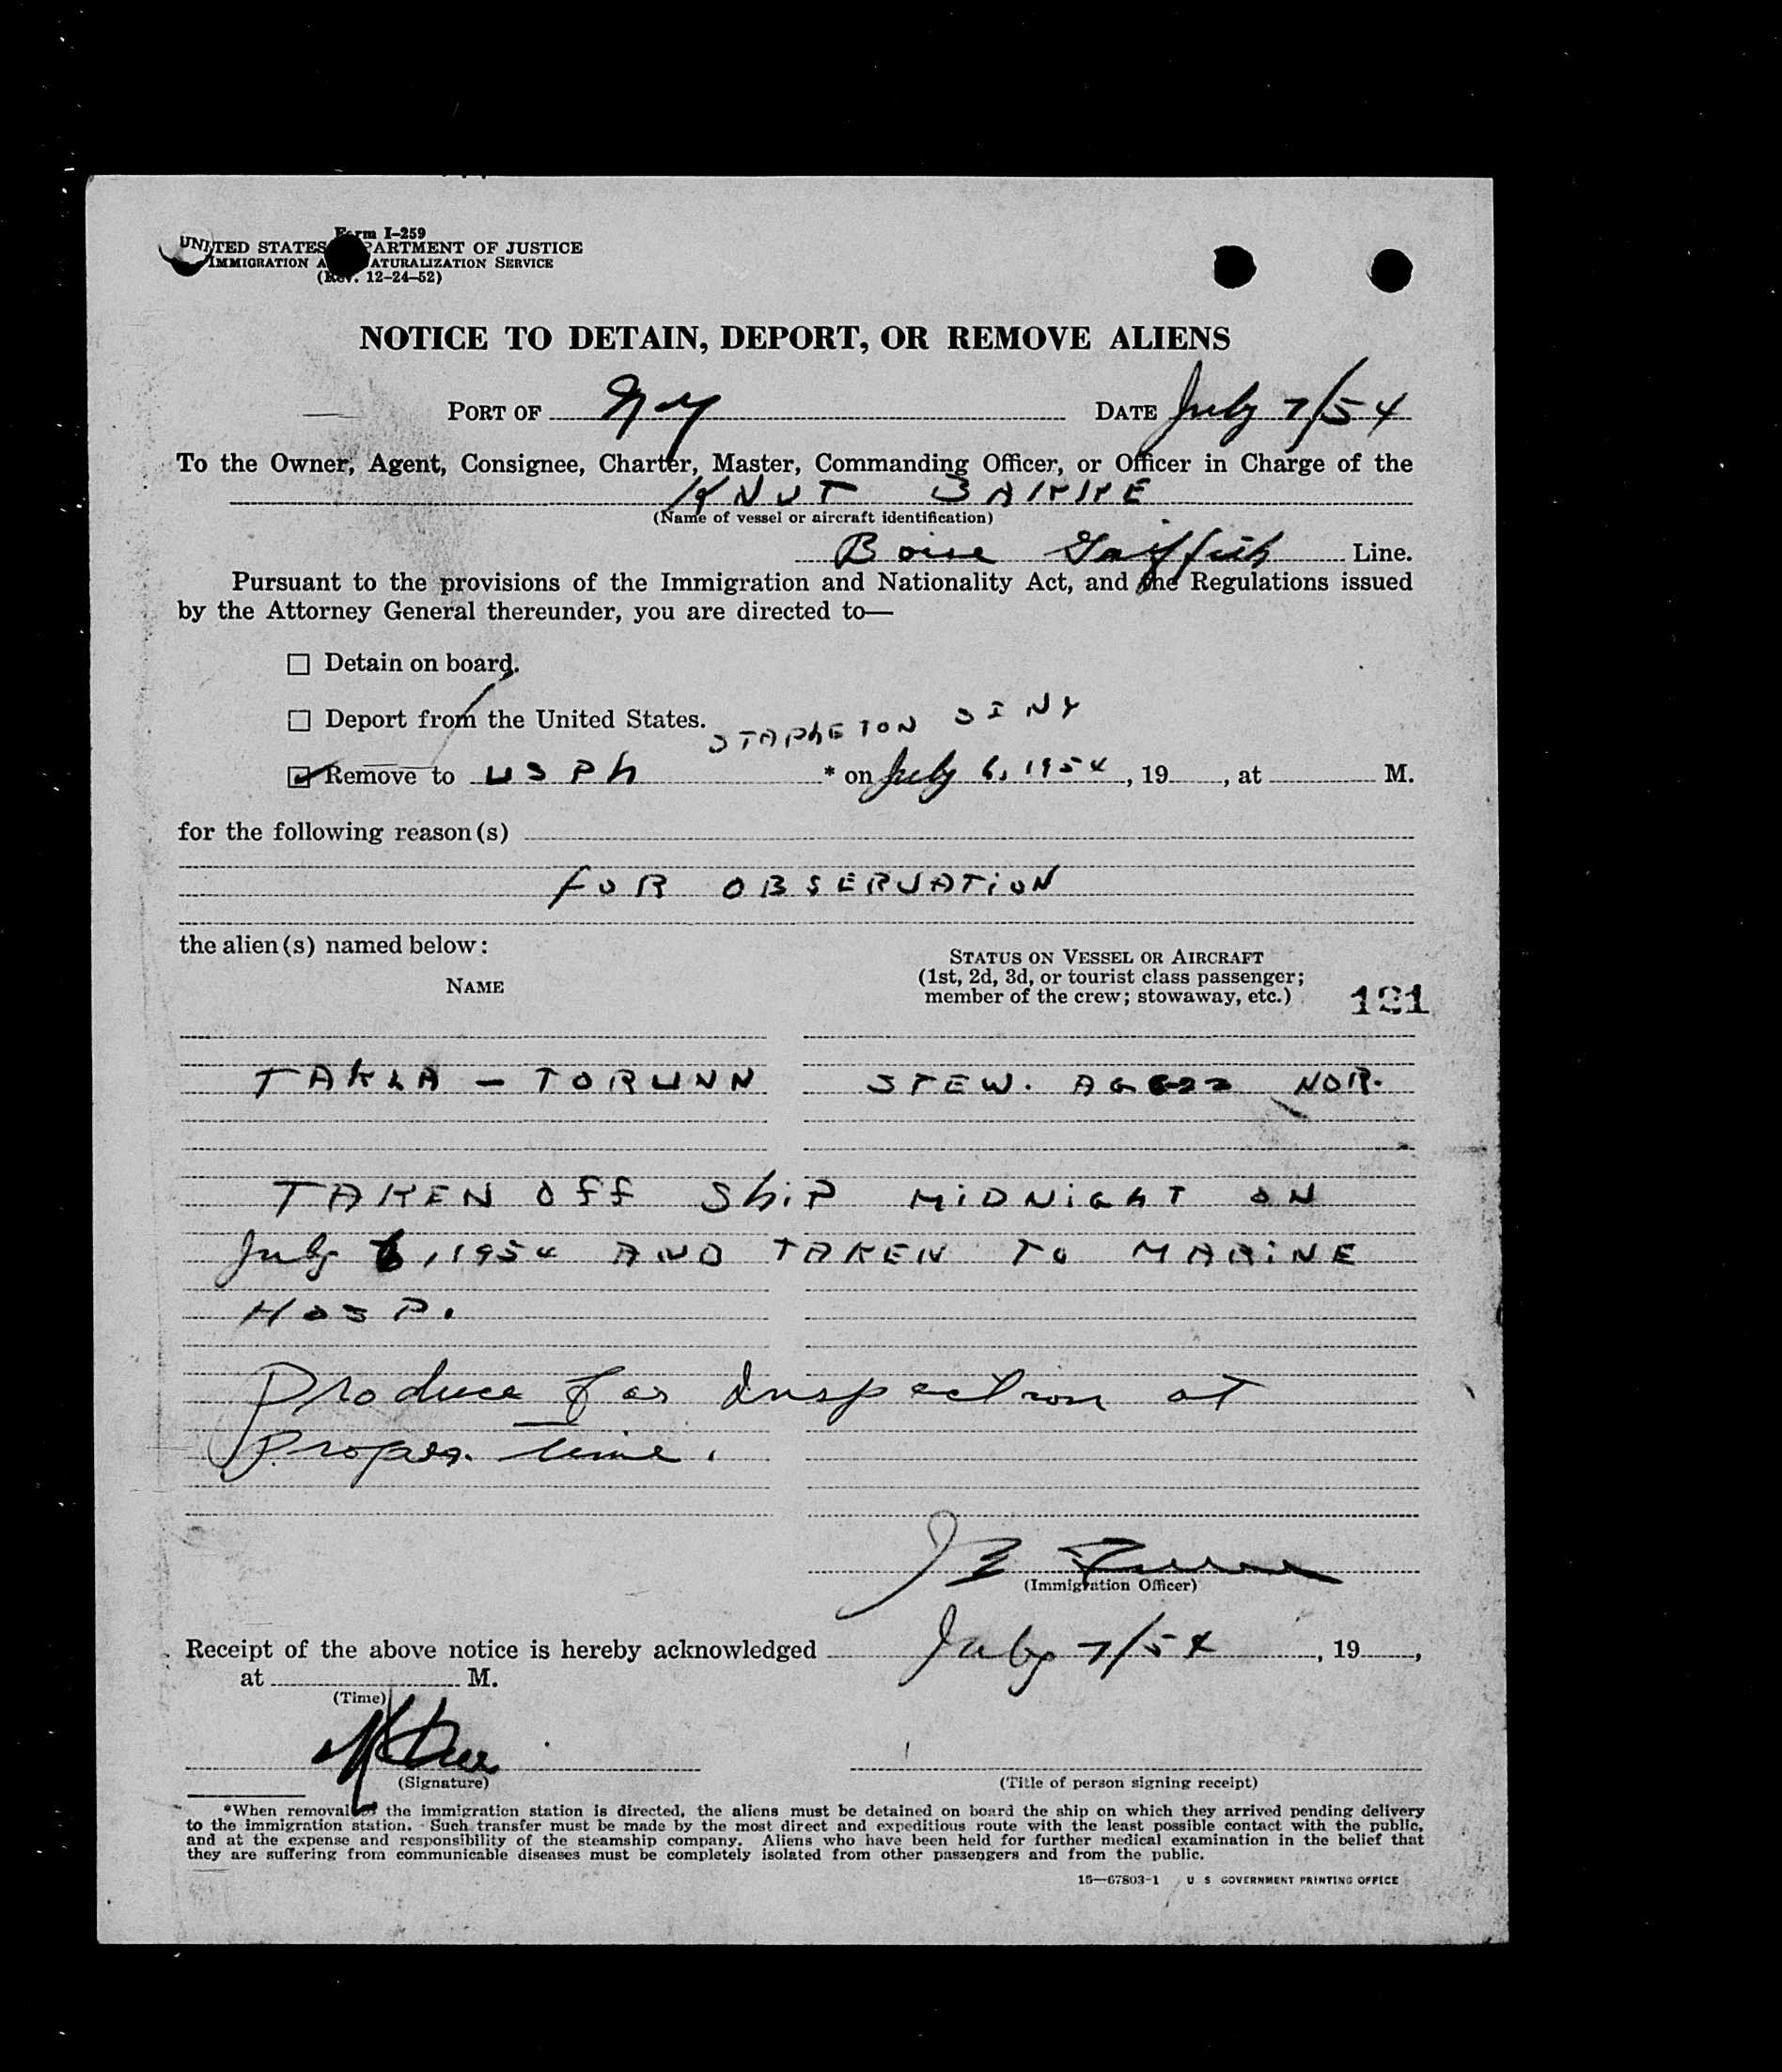 Form I-259
UNITED STATES DEPARTMENT OF JUSTICE
IMMIGRATION AND NATURALIZATION SERVICE
(Rev. 12-24-52)
NOTICE TO DETAIN, DEPORT, OR REMOVE ALIENS
PORT OF NY DATE July 7/54
To the Owner, Agent, Consignee, Charter, Master, Commanding Officer, or Officer in Charge of the
KNUT BAKKE
(Name of vessel or aircraft identification)
Boise Griffith Line.
Pursuant to the provisions of the Immigration and Nationality Act, and the Regulations issued
by the Attorney General thereunder, you are directed to—
☐ Detain on board.
☐ Deport from the United States.
STAPLETON SI NY
☑ Remove to USPH * on July 6, 1954, 19, at M.
for the following reason(s)
FOR OBSERVATION
the alien(s) named below:
NAME
STATUS ON VESSEL OR AIRCRAFT
(1st, 2d, 3d, or tourist class passenger;
member of the crew; stowaway, etc.)
121
TAKLA - TORUNN STEW. AGE 22 NOR.
TAKEN OFF SHIP MIDNIGHT ON
July 6, 1954 AND TAKEN TO MARINE
HOSP.
Produce for Inspection at
Proper time.
(Immigration Officer)
Receipt of the above notice is hereby acknowledged July 7/54, 19,
at M.
(Time)
(Signature)
(Title of person signing receipt)
*When removal to the immigration station is directed, the aliens must be detained on board the ship on which they arrived pending delivery
to the immigration station. Such transfer must be made by the most direct and expeditious route with the least possible contact with the public,
and at the expense and responsibility of the steamship company. Aliens who have been held for further medical examination in the belief that
they are suffering from communicable diseases must be completely isolated from other passengers and from the public.
16—67803-1 U S GOVERNMENT PRINTING OFFICE